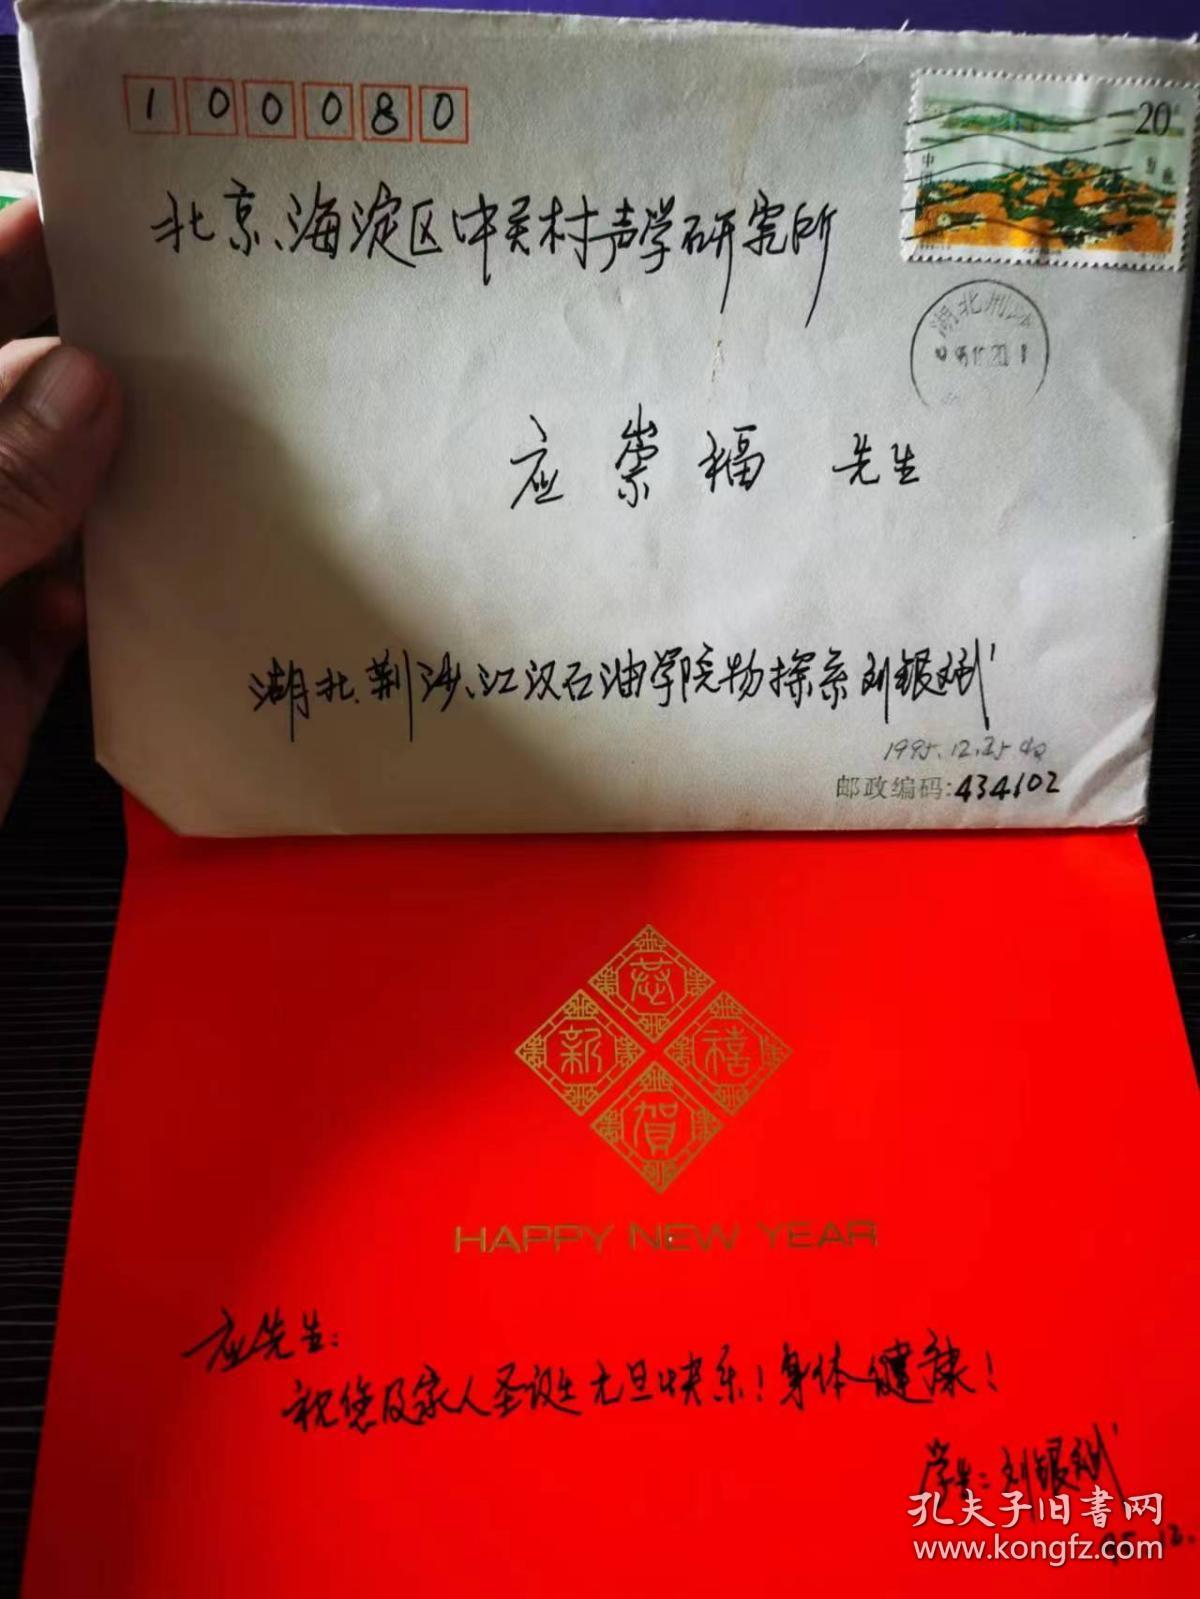 100080
20
中国
北京、海淀区中关村声学研究所
湖北荆沙
应崇福 先生
湖北、荆沙、江汉石油学院物探系刘银斌
1995.12.25
邮政编码:434102
恭
新 禧
賀
HAPPY NEW YEAR
应先生:
祝您及家人圣诞元旦快乐!身体健康!
学生:刘银斌
95.12.
孔夫子旧书网
www.kongfz.com